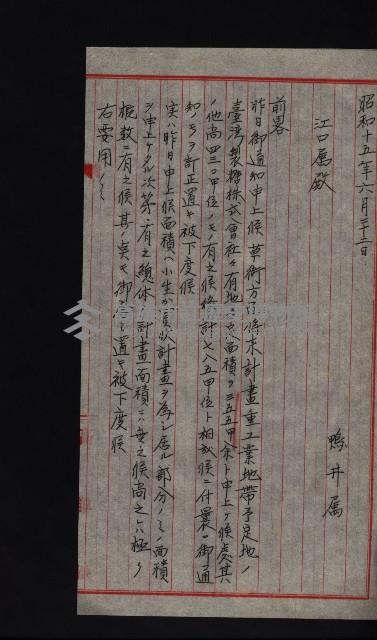 昭和十五年六月二十二日
江口属殿
鴨井属
前畧
昨日御通知申上候草衙方面将来計畫重工業地帶予定地ノ
臺灣製糖株式會社々有地ノ面積ヲ三五五甲余ト申上ケ候処其
ノ他尚四三〇甲位ノモノ有之候総計七八五甲位ト相成候ニ付曩ニ御通
知ノモノヲ訂正置キ被下度候
実ハ昨日申上候面積ハ小生ガ買収計畫ヲ為シ居ル部分ノミノ面積
ヲ申上ケタル次第ニ有之総体ノ計畫面積ニハ無之候尚之ハ極ク
概数ニ有之候其ノ点モ御置キ被下度候
右要用ノミ